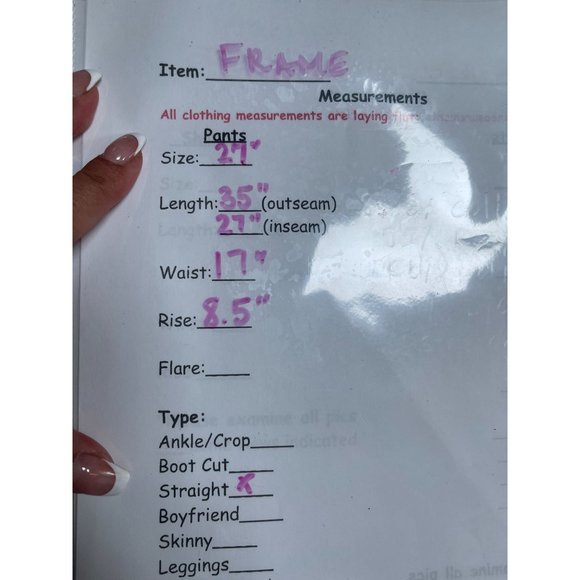 Item: FRAME
Measurements
All clothing measurements are laying flat:
Pants
Size: 27"
Length: 35" (outseam)
27" (inseam)
Waist: 17"
Rise: 8.5"
Flare:____
Type:
Ankle/Crop____
Boot Cut____
Straight X
Boyfriend____
Skinny____
Leggings____